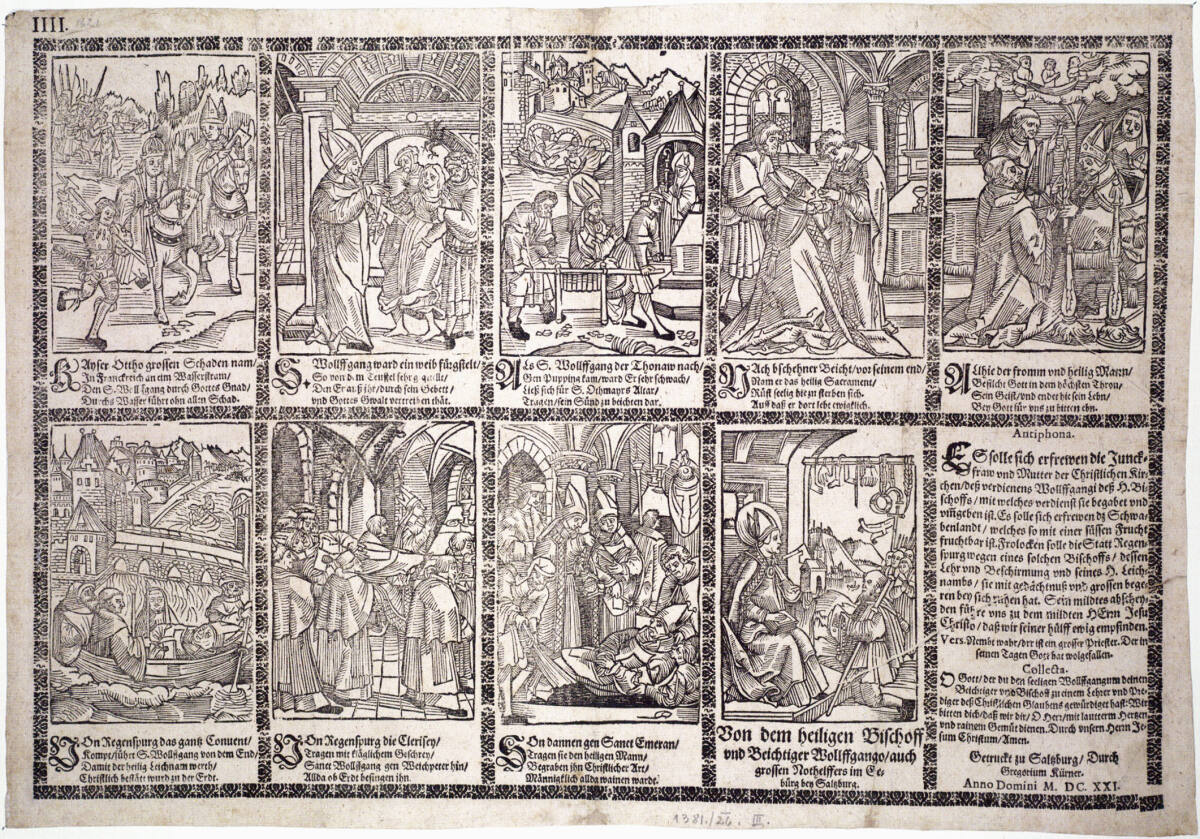 IIII.
KAyser Ottho grossen Schaden nam/
In Franckreich an eim Wasserstram/
Den S. Wolffgang durch Gottes Gnad/
Durchs Wasser führt ohn allen Schad.
S. Wolffgang ward ein weib fürgstelt/
So von dem Teuffel sehr gequelt/
Den Er auß jhr/durch sein Gebett/
vnd Gottes Gwalt vertreiben thät.
ALs S. Wolffgang der Thonaw nach/
Gen Pupping kam/ward Er sehr schwach/
Ließ sich für S. Othmayrs Altar/
Tragen/sein Sünd zu beichten dar.
NAch bschehner Beicht/vor seinem end/
Nam er das heilig Sacrament/
Rüst seelig hie zu sterben sich.
Auff daß er dort lebe ewigklich.
ALlhie der fromm vnd heilig Mann/
Befilcht Gott in dem höchsten Thron/
Sein Geist/vnd endet hie sein Lebn/
Bey Gott für vns zu bitten ebn.
VOn Regenspurg das gantz Conuent/
Kompt/führt S. Wolffgang von dem End/
Damit der heilig Leichnam werth/
Christlich bestätt wurd zu der Erdt.
VOn Regenspurg die Clerisey/
Tragen mit kläglichem Geschrey/
Sanct Wolffgang gen Weichpeter hin/
Allda ob Erdt besingen jhn.
VOn dannen gen Sanct Emeran/
Tragen sie den heiligen Mann/
Begraben jhn Christlicher Art/
Männigklich allda wainen warde.
Von dem heiligen Bischoff
vnd Beichtiger Wolffgango/auch
grossen Nothelffers im Ge-
bürg bey Saltzburg.
Antiphona.
ES solle sich erfrewen die Junck-
fraw vnd Mutter der Christlichen Kir-
chen/deß verdienens Wolffgangi deß H. Bi-
schoffs/mit welches verdienst sie begabet vnd
vmbgeben ist. Es solle sich erfrewen dz Schwa-
benlandt/welches so mit einer süssen Frucht
fruchtbar ist. Frolocken solle die Statt Regen-
spurg wegen eines solchen Bischoffs/dessen
Lehr vnd Beschirmung vnd seines H. Leich-
nambs/sie mit gedächtnuß vnd grossen bege-
ren bey sich ruhen hat. Sein mildtes abschey-
den führe vns zu dem mildten HErrn Jesu
Christo/daß wir seiner hülff ewig empfinden.
Vers. Nembt wahr/der ist ein grosser Priester. Der in
seinen Tagen Gott hat wolgefallen.
Collecta.
O Gott/der du den seeligen Wolffgangum deinen
Beichtiger vnd Bischoff zu einem Lehrer vnd Pre-
diger deß Christlichen Glaubens gewürdiget hast: Wir
bitten dich/daß wir dir/O Herr/mit lautterm Hertzen
vnd rainem Gemüt dienen. Durch vnsern Herrn Je-
sum Christum/Amen.
Getruckt zu Saltzburg/Durch
Gregorium Kürner.
Anno Domini M. DC. XXI.
1381./26. III.